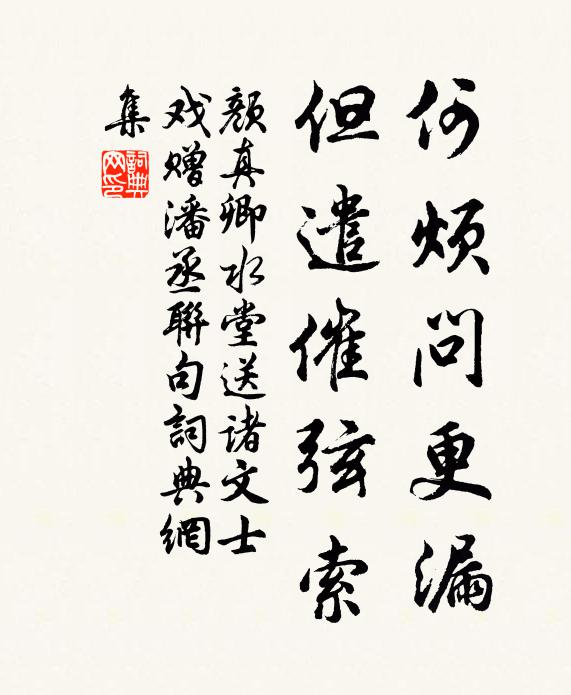 何煩問更漏
但遣催弦索
顏真卿水堂送諸文士
戏赠潘丞聯句詞典網
集
詞典
网印